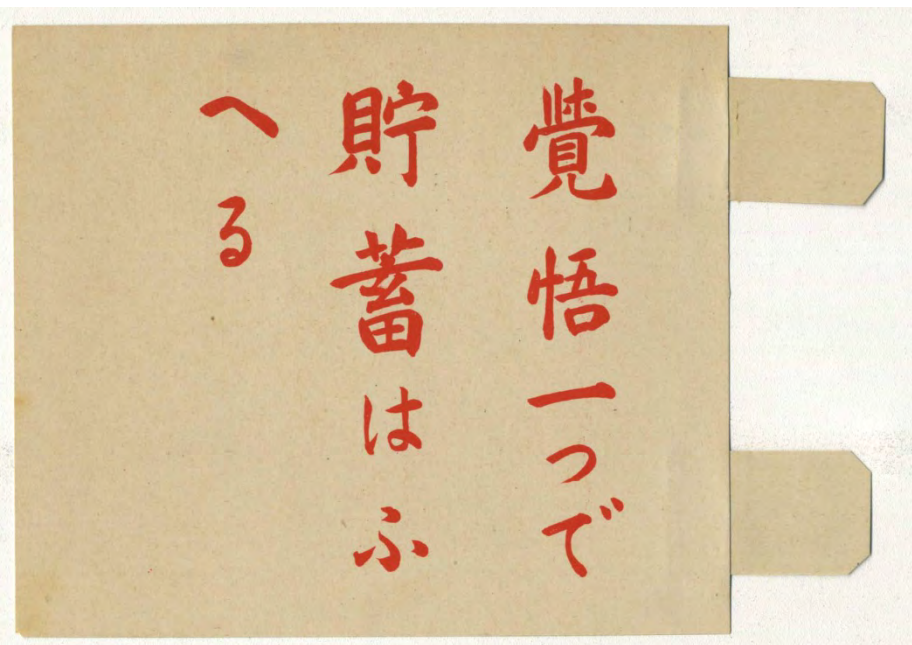 覺悟一つで
貯蓄はふ
へる